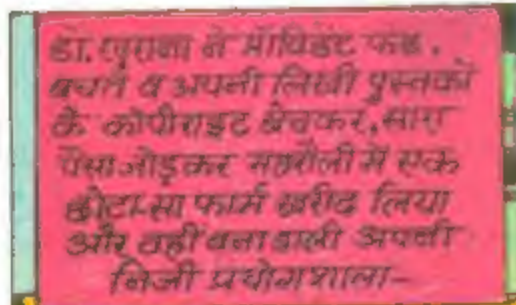 डा. खुराना ने प्रोविडेंट फंड,
बचत व अपनी लिखी पुस्तकों
के कॉपीराइट बेचकर, सारा
पैसा जोड़कर महरौली में एक
छोटा-सा फार्म खरीद लिया
और वहीं बना डाली अपनी
निजी प्रयोगशाला-